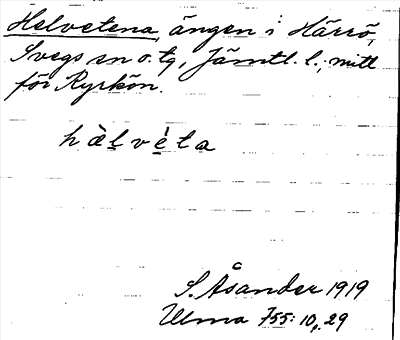 Helvetena, ängen i Härrö,
Svegs sn o. tg, Jämtl. l.; mitt
för Ryrkön.
hȧlvėta
S. Åsander 1919
Ulma 755: 10, 29